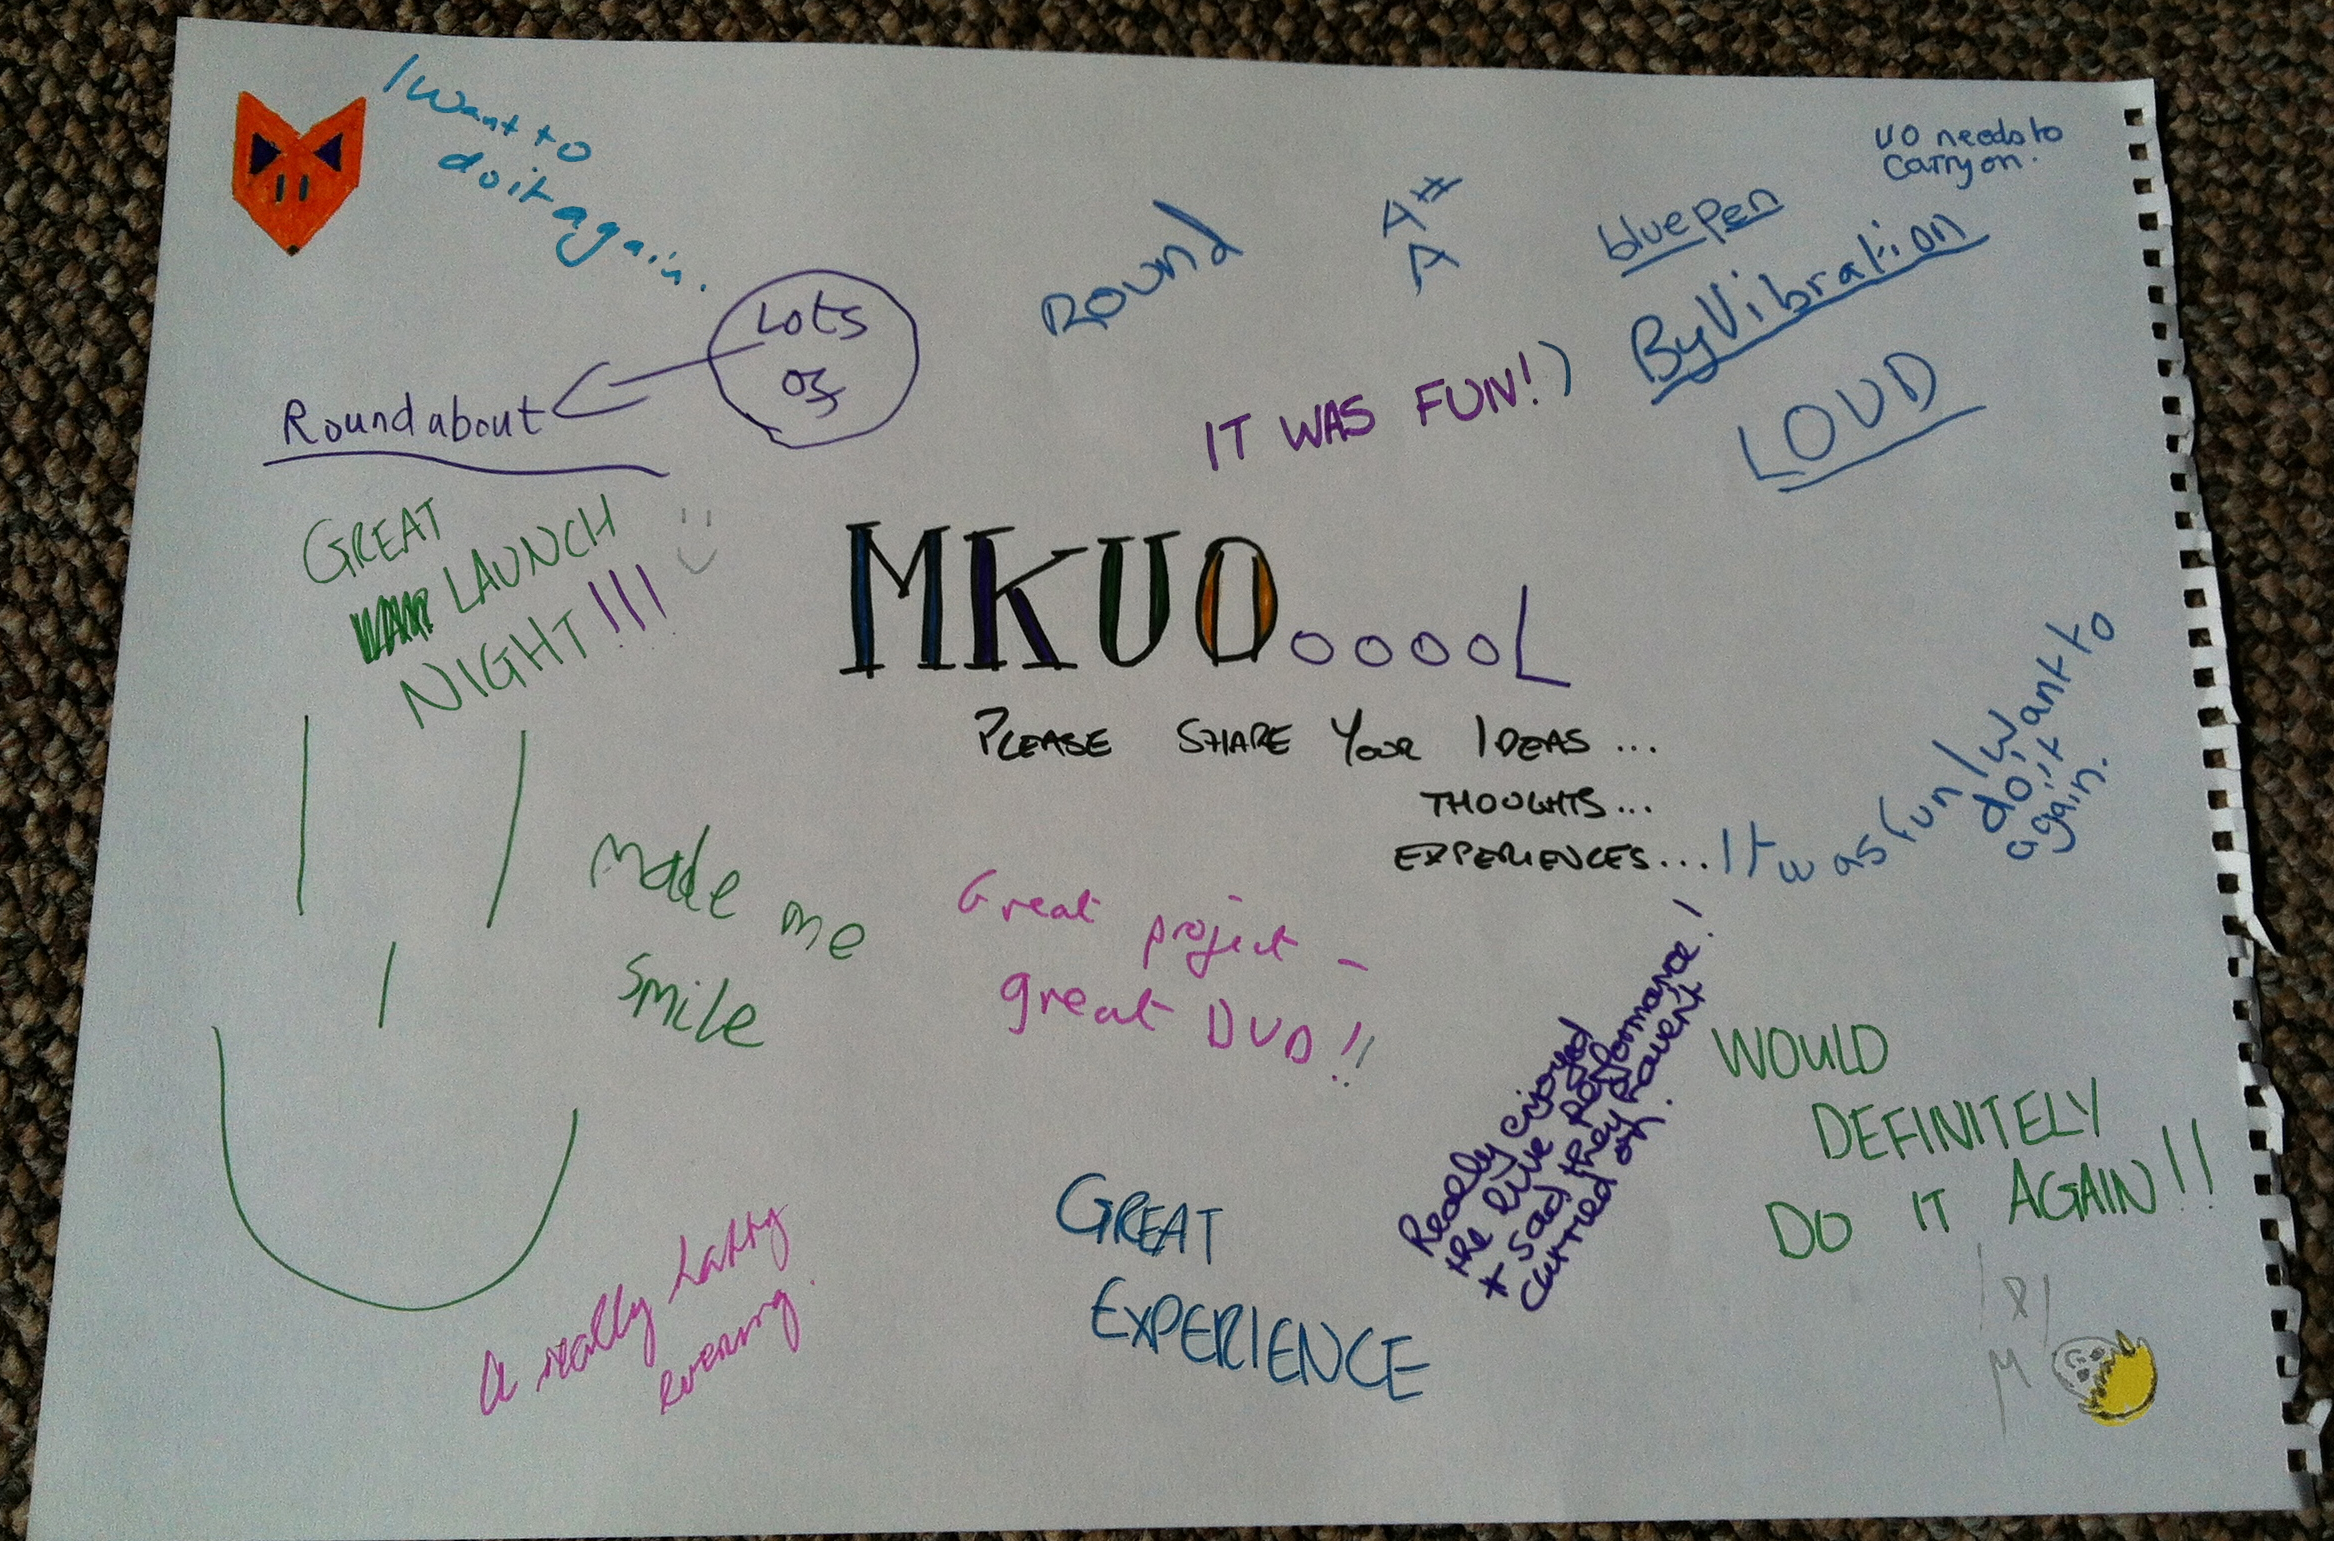 I want to
do it again.
UO needs to
carry on.
Round
A#
A
blue pen
By Vibration
LOUD
Lots
of
Roundabout
IT WAS FUN!)
GREAT
LAUNCH
NIGHT!!!
MKUO....ooooL
PLEASE SHARE YOUR IDEAS...
THOUGHTS...
EXPERIENCES...
It was fun I want to
do it
again.
Made me
smile
Great project -
great DVD!!
Really enjoyed
the live performance!
+ sad they haven't
carried on.
WOULD
DEFINITELY
DO IT AGAIN!!
GREAT
EXPERIENCE
A really
evening.